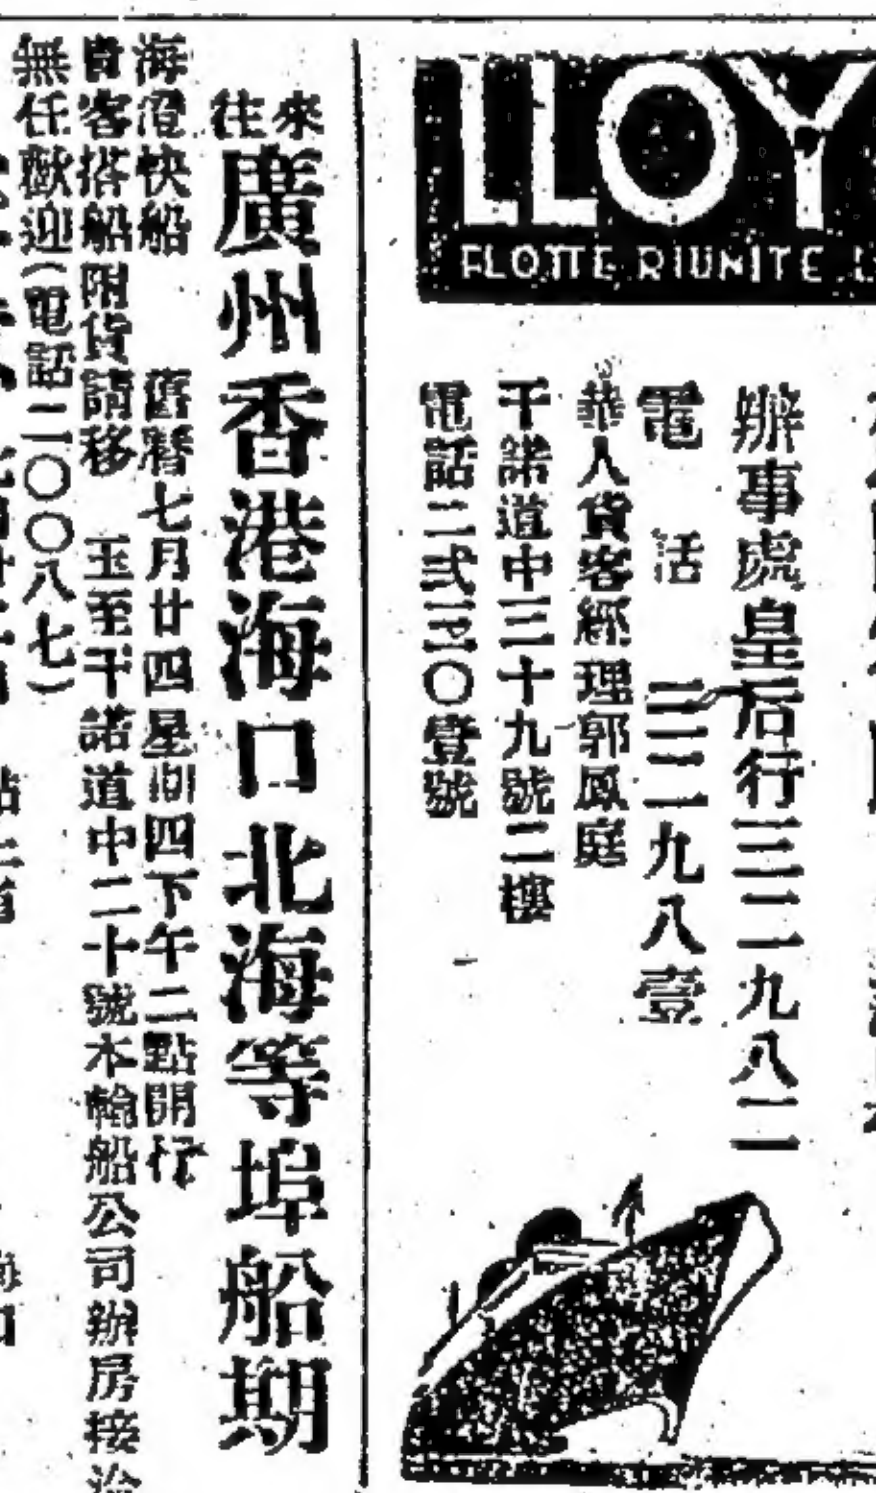 LLOY
FLOTTE RIUNITE L
辦事處皇后行三二一九八二
電話 三二一九八壹
華人貨客經理郭鳳庭
干諾道中三十九號二樓
電話二弍一〇壹號
來往
廣州香港海口北海等埠船期
海澄快船 舊曆七月廿四星期四下午二點開行
貴客搭船附貨請移 玉至干諾道中二十號本輪船公司辦房接洽
無任歡迎(電話二〇〇八七)